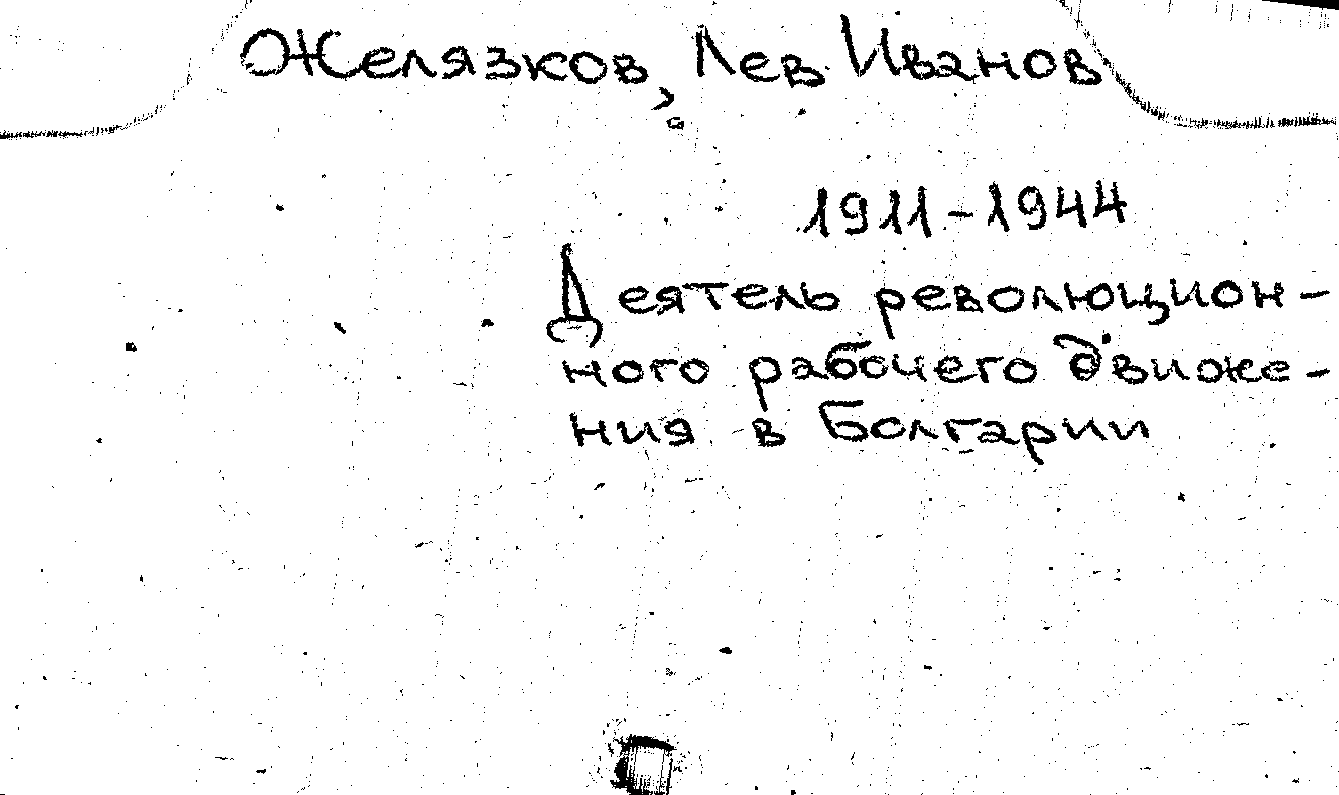 Желязков, Лев Иванов
1911-1944
Деятель революцион-
ного рабочего движе-
ния в Болгарии